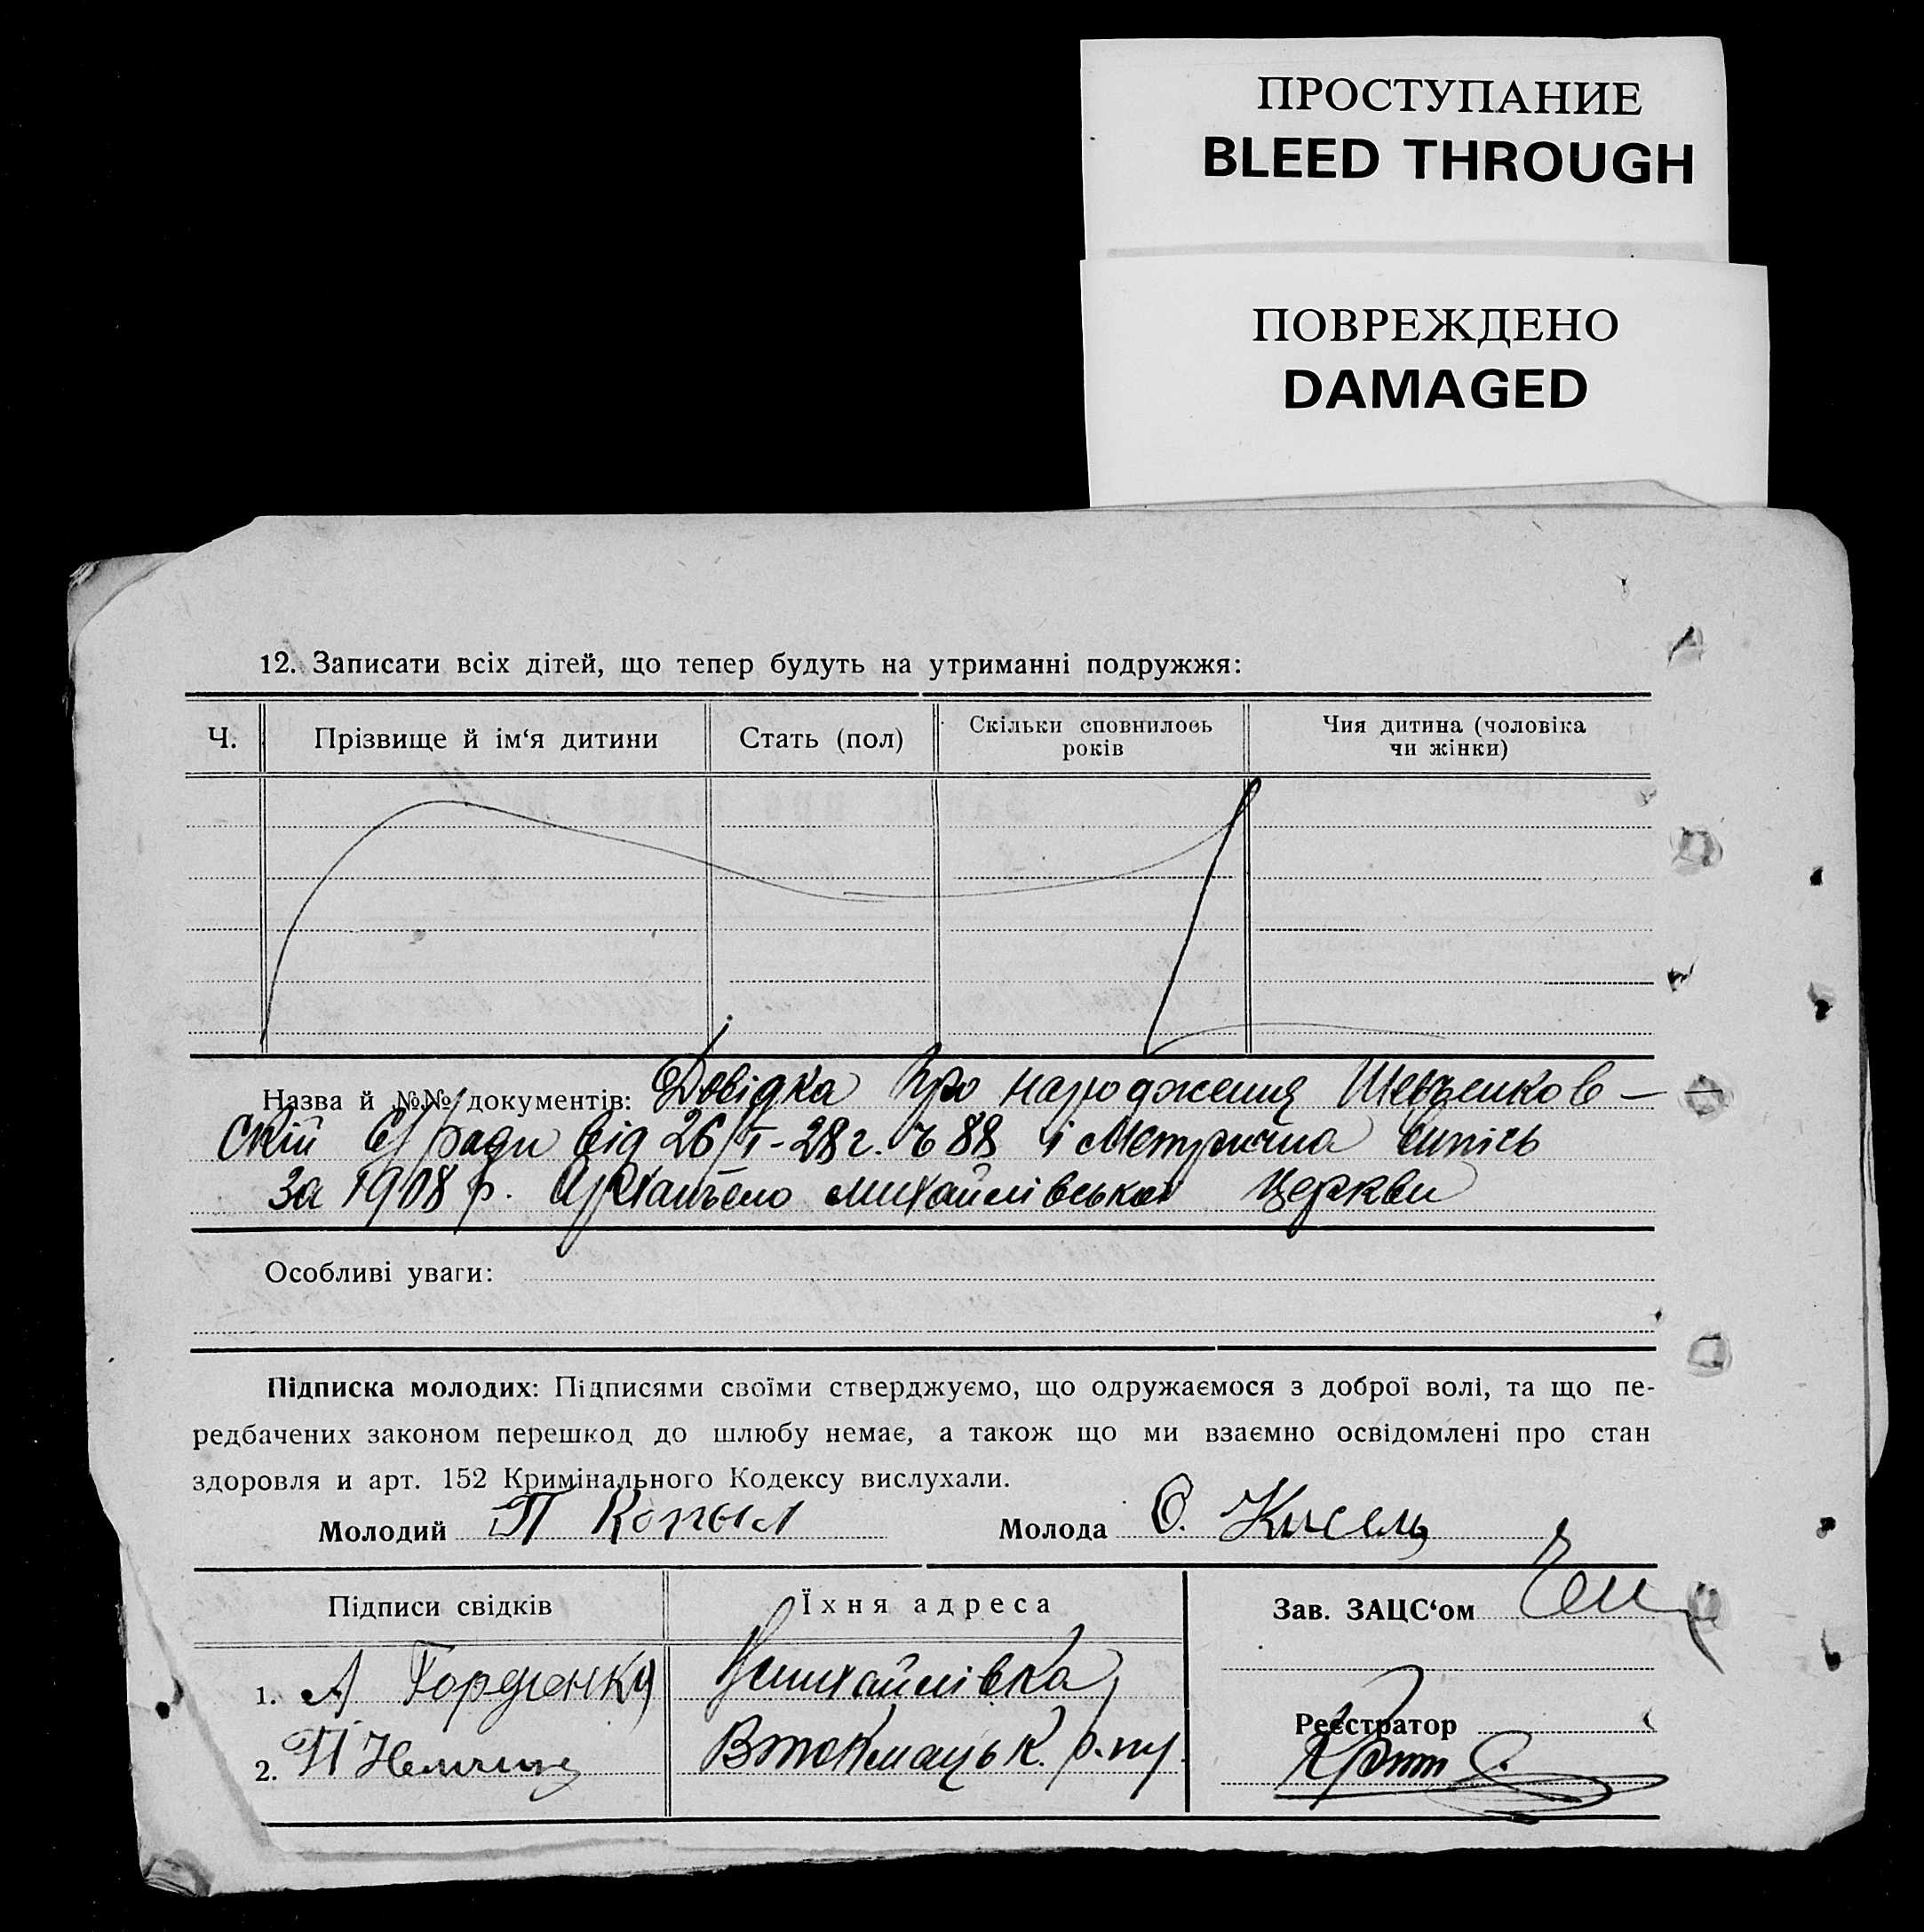 ПРОСТУПАНИЕ
BLEED THROUGH
ПОВРЕЖДЕНО
DAMAGED
12. Записати всіх дітей, що тепер будуть на утриманні подружжя:
Ч.
Прізвище й ім‘я дитини
Стать (пол)
Скільки сповнилось
років
Чия дитина (чоловіка
чи жінки)
Назва й №№ документів: Довідка про народження Шевченков-
скій с/ради від 26/I-28 г. № 88 і Метрична випісь
за 1908 р. Архангело михайлівської церкви
Особливі уваги:
Підписка молодих: Підписями своїми стверджуємо, що одружаємося з доброї волі, та що пе-
редбачених законом перешкод до шлюбу немає, а також що ми взаємно освідомлені про стан
здоровля и арт. 152 Кримінального Кодексу вислухали.
Молодий П Копыл
Молода О. Кисель
Підписи свідків
Їхня адреса
Зав. ЗАЦС‘ом
1. А Гордіенко
2. П Немчин
михайлівка
Втокмацьк. р-ну
Реєстратор